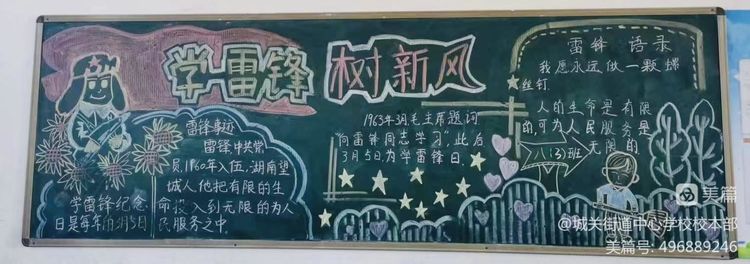 学雷锋 树新风
雷锋事迹
雷锋中共党
员,1960年入伍,湖南望
城人他把有限的生
命投入到无限的为人
民服务之中
学雷锋纪念
日是每年的3月5日
1963年3月毛主席题词
"向雷锋同志学习"此后
3月5日为学雷锋日.
雷锋 语录
我愿永远做一颗螺
丝钉.
人的生命是有限
的,可为人民服务是
无限的
八(3)班
美篇
@城关街道中心学校校本部
美篇号: 496889246